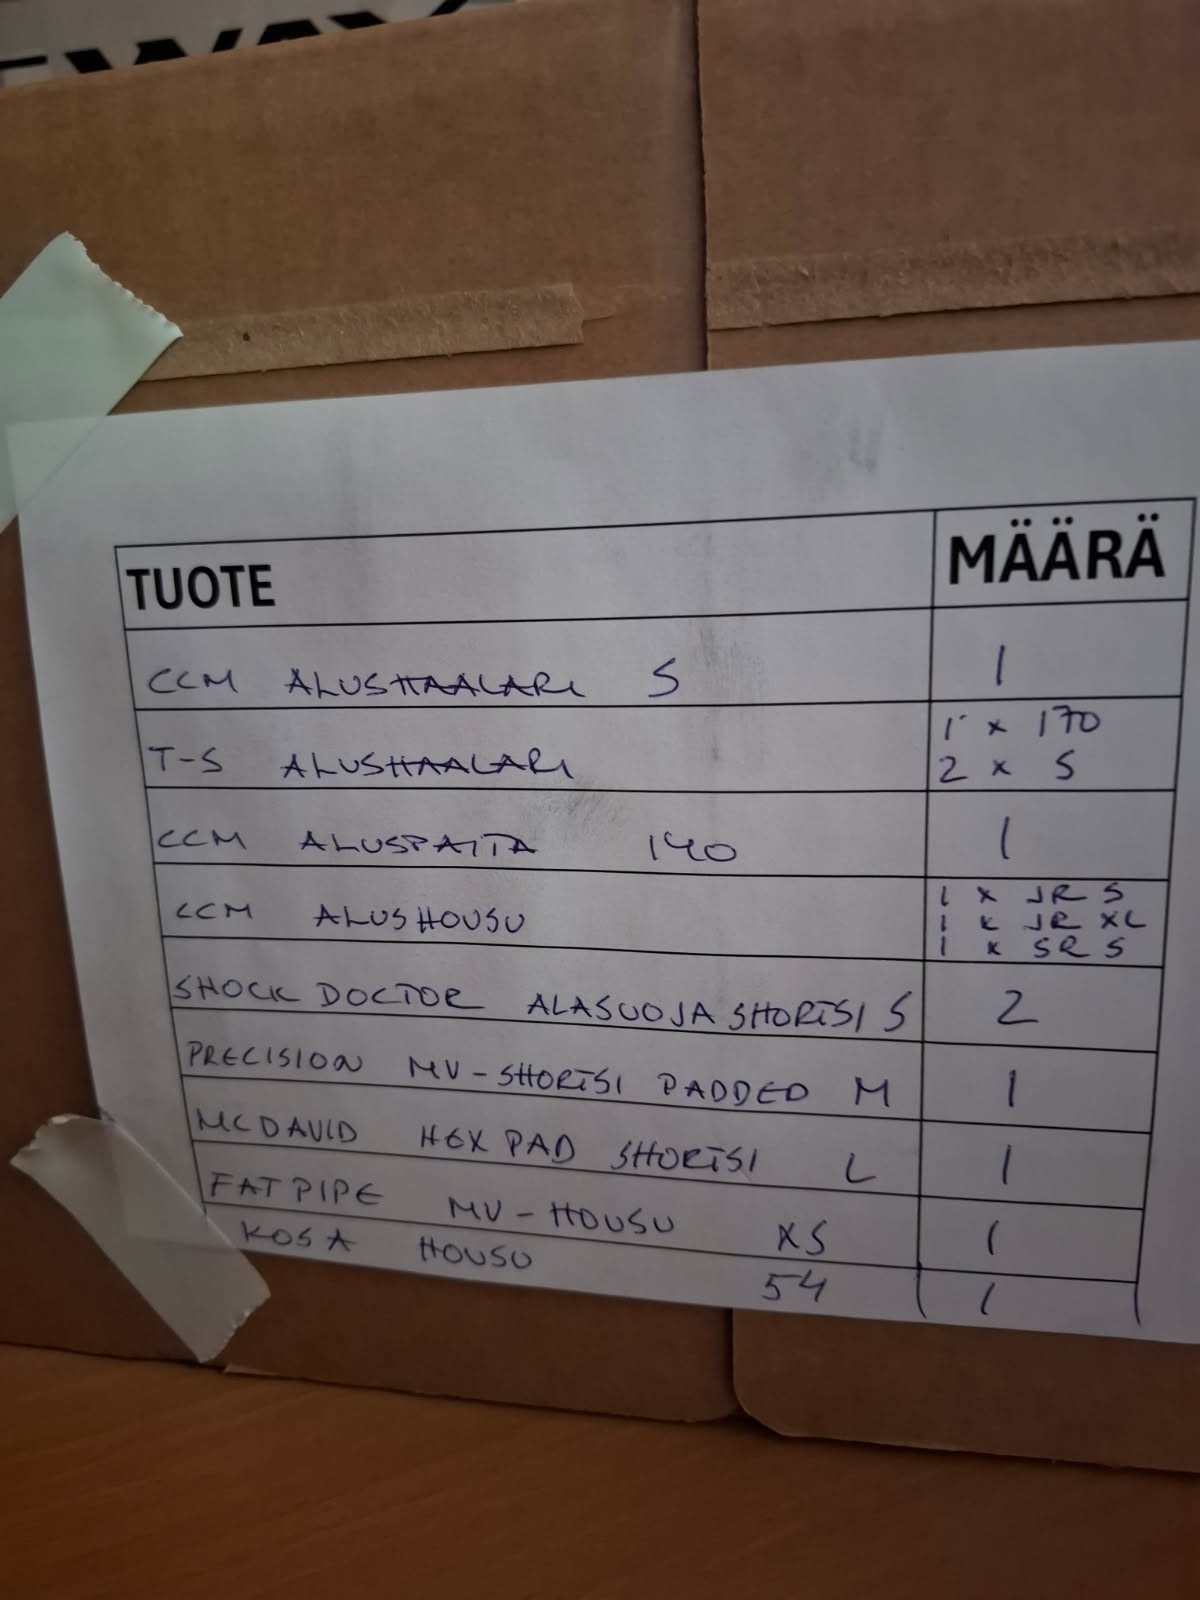 TUOTE MÄÄRÄ
CCM ALUSHAALARI S 1
T-S ALUSHAALARI 1 x 170
2 x S
CCM ALUSPAITA 140 1
CCM ALUSHOUSU 1 x JR S
1 x JR XL
1 x SR S
SHOCK DOCTOR ALASUOJASHORTSI S 2
PRECISION MV-SHORTSI PADDED M 1
MCDAVID HEX PAD SHORTSI L 1
FATPIPE MV-HOUSU XS 1
KOSA HOUSU 54 1